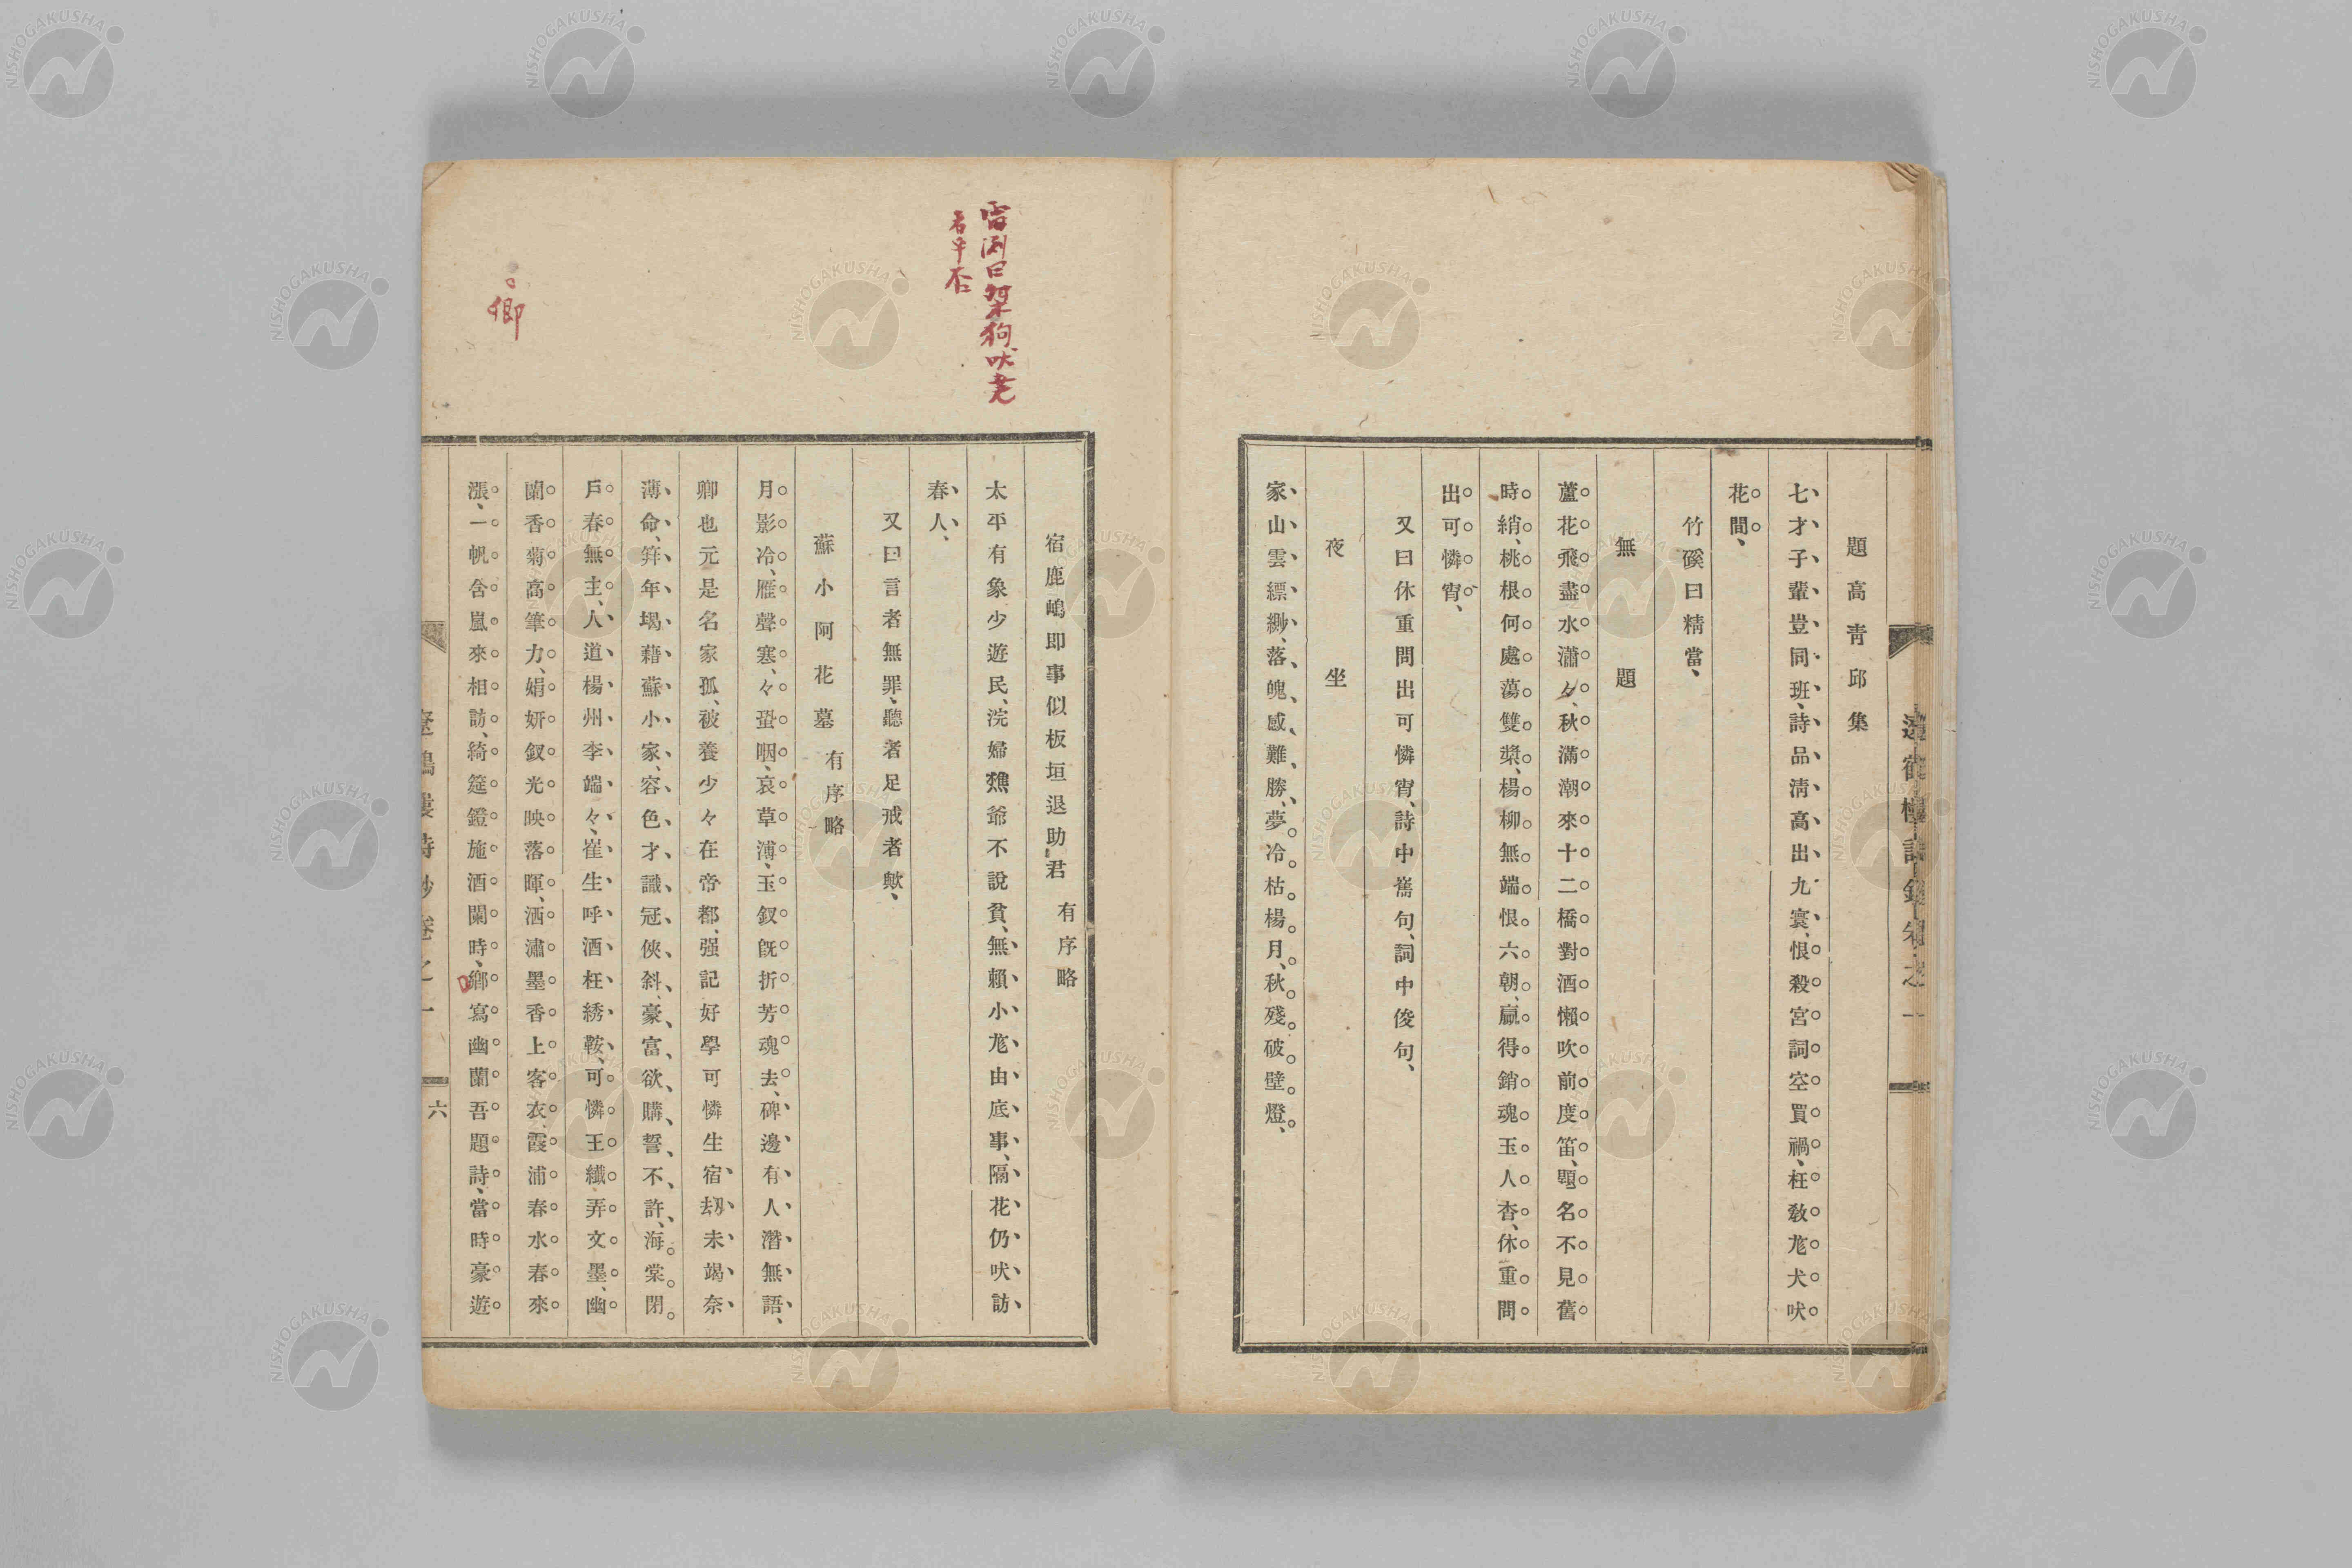 遼鶴樓詩鈔卷之一
題高靑邱集
七才子輩豈同班、詩品淸高出九寰、恨殺宮詞空買禍、枉敎尨犬吠
花間、
竹磎曰精當、
無題
蘆花飛盡水瀟々、秋滿潮來十二橋對酒懶吹前度笛、題名不見舊
時綃、桃根何處蕩雙槳、楊柳無端恨六朝、贏得銷魂玉人杳、休重問
出可憐宵、
又曰休重問出可憐宵、詩中舊句、詞中俊句、
夜坐
家山雲縹緲、落魄感難勝、夢冷枯楊月、秋殘破壁燈、
宿鹿嶋即事似板垣退助君有序略
太平有象少遊民、浣婦樵爺不說貧、無賴小尨由底事、隔花仍吠訪
春人、
又曰言者無罪、聽者足戒者歟、
蘇小阿花墓有序略
月影冷、雁聲寒、々蛩咽、哀草溥、玉釵旣折芳魂去、碑邊有人潛無語、
卿也元是名家孤、被養少々在帝都、强記好學可憐生宿刼未竭奈
薄命、筓年堨藉蘇小家、容色才識冠俠斜、豪富欲購誓不許、海棠閉
戶春無主、人道楊州李端々、崔生呼酒枉綉鞍、可憐王纖弄文墨、幽
蘭香菊高筆力、娟妍釵光映落暉、洒瀟墨香上客衣、霞浦春水春來
漲、一帆含嵐來相訪、綺筵鐙施酒闌時、鄉寫幽蘭吾題詩、當時豪遊
遼鶴樓詩鈔卷之一
六
雷淵曰桀狗吠堯
者乎否
卿
NISHOGAKUSHA